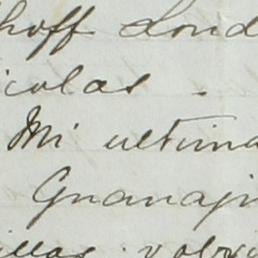 hoff Lond
icolas.
Mi ultima
Guanaju
illas volvi